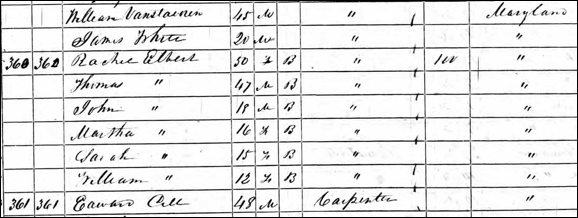 William 45 M " Maryland
James White 20 M " "
360 360 Rachel Elbert 50 F B " 100 "
Thomas " 47 M B " "
John " 18 M B " "
Martha " 16 F B " "
Sarah " 15 F B " "
William " 12 F B " "
361 361 Edward 48 M Carpenter "